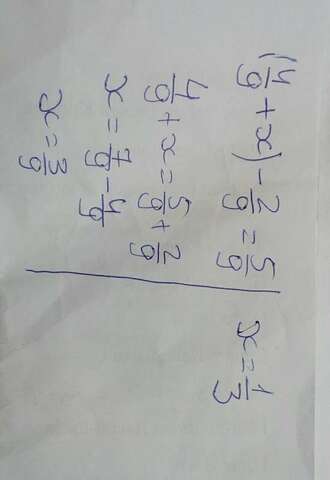 (4/9 + x) - 2/9 = 5/9
4/9 + x = 5/9 + 2/9
x = 7/9 - 4/9
x = 3/9
x = 1/3